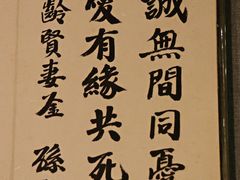 誠無間同憂
愛有緣共死
齡賢妻鉴 孫